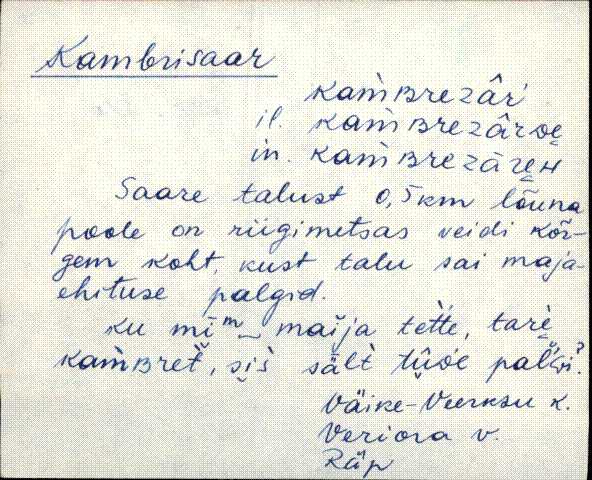 Kambrisaar
kam̀ʙrezâŕ
il. kam̀ʙrezârᴅe̬
in. kam̀ʙrezāre̬н
Saare talust 0,5 km lõuna
poole on riigimetsas veidi kõr-
gem koht, kust talu sai maja-
ehituse palgid.
ku mī maija tètte, tarè
kam̀bret, siš sält tûᴅe
Väike-Veerksu k.
Veriora v.
Räp